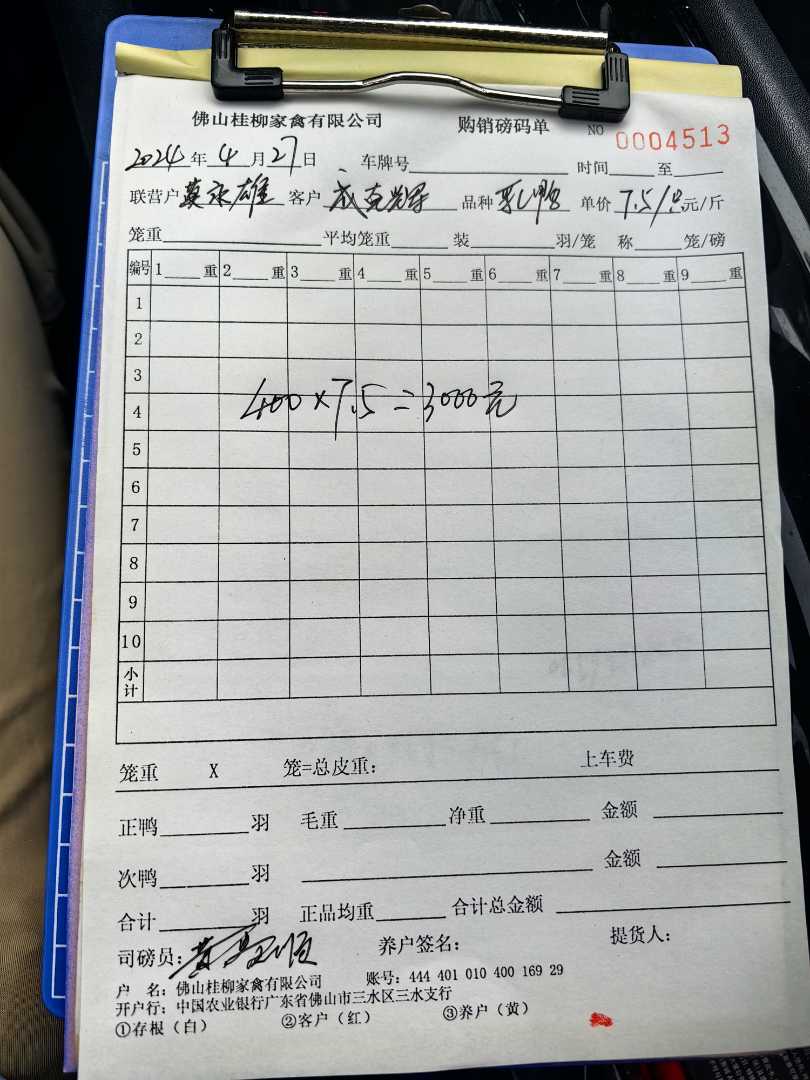 佛山桂柳家禽有限公司 购销磅码单 NO 0004513
2024年4月27日 车牌号 时间 至
联营户 莫永雄 客户 品种 单价 7.5/ 元/斤
笼重 平均笼重 装 羽/笼 称 笼/磅
编号 1 重 2 重 3 重 4 重 5 重 6 重 7 重 8 重 9 重
1
2
3
400×7.5=3000元
4
5
6
7
8
9
10
小计
笼重 X 笼=总皮重: 上车费
正鸭 羽 毛重 净重 金额
次鸭 羽 金额
合计 羽 正品均重 合计总金额
司磅员: 养户签名: 提货人:
户 名: 佛山桂柳家禽有限公司 账号: 444 401 010 400 169 29
开户行: 中国农业银行广东省佛山市三水区三水支行
①存根(白) ②客户(红) ③养户(黄)